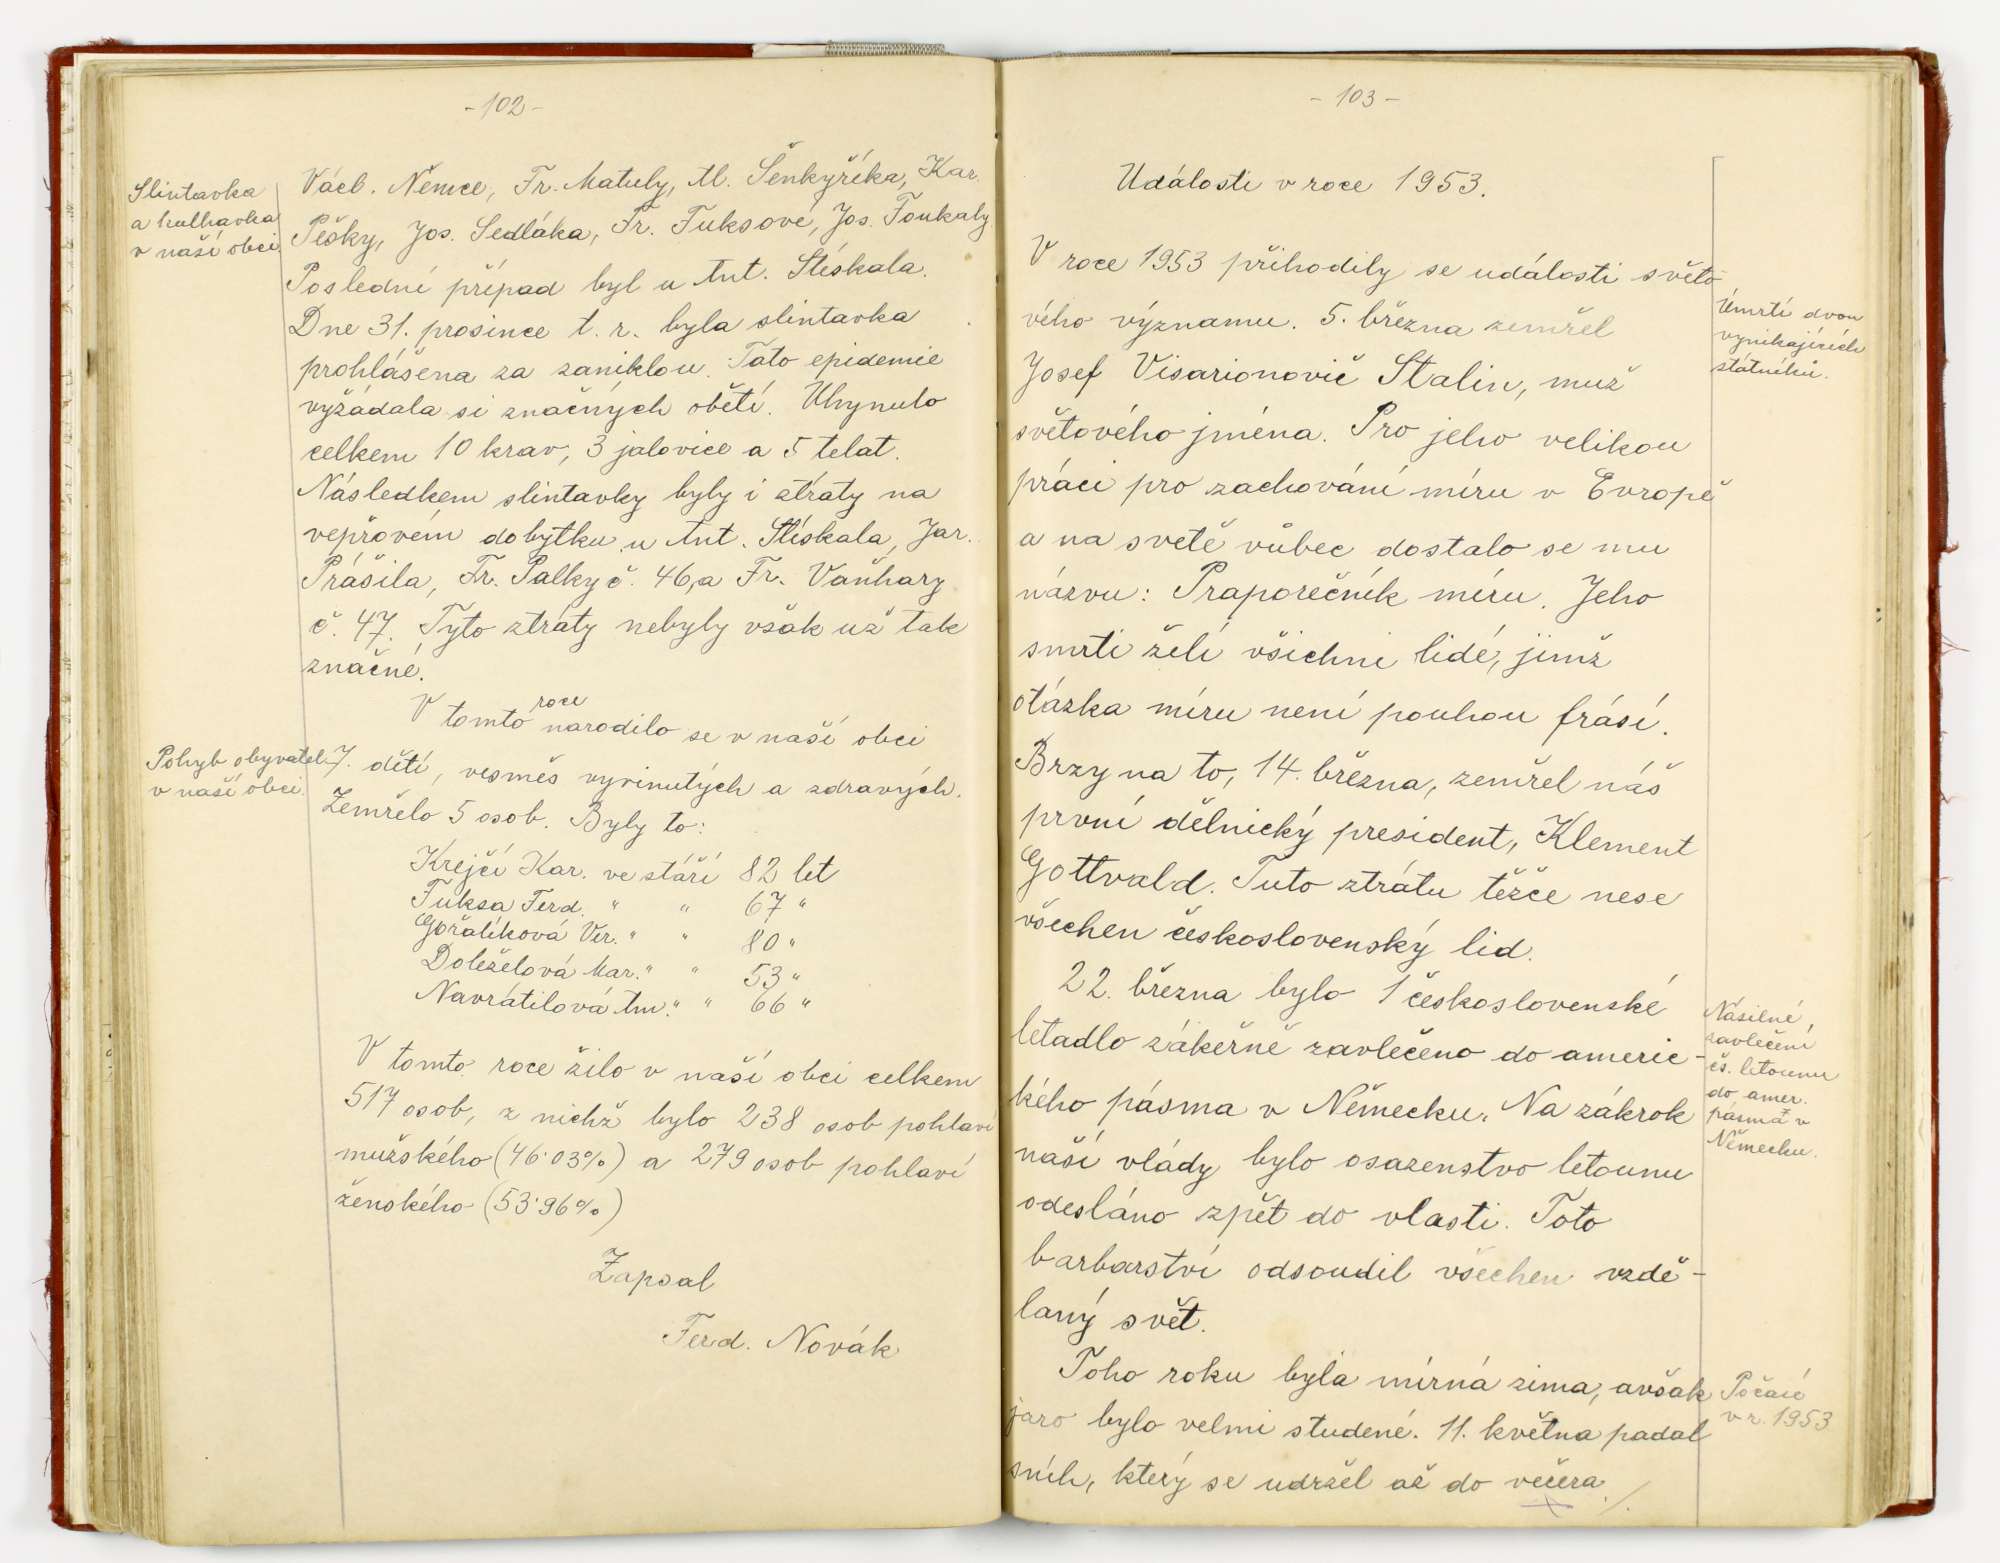 - 102 -
Slintavka
a kulhavka
v naší obci
Václ. Němce, Fr. Matuly, Al. Šenkyříka, Kar.
Pešky, Jos. Sedláka, Fr. Fuksové, Jos. Foukaly
Poslední případ byl u Ant. Stískala.
Dne 31. prosince t. r. byla slintavka
prohlášena za zaniklou. Tato epidemie
vyžádala si značných obětí. Uhynulo
celkem 10 krav, 3 jalovice a 5 telat.
Následkem slintavky byly i ztráty na
vepřovém dobytku u Ant. Stískala, Jar.
Prášila, Fr. Palky č. 46, a Fr. Vaňhary
č. 47. Tyto ztráty nebyly však už tak
značné.
V tomto roce narodilo se v naší obci
Pohyb obyvatel
v naší obci.
7. dětí, vesměs vyvinutých a zdravých.
Zemřelo 5 osob. Byly to:
Krejčí Kar. ve stáří 82 let
Fuksa Ferd. " " 67 "
Gořalíková Ver. " " 80 "
Doleželová Mar. " " 53 "
Navrátilová An. " " 66 "
V tomto roce žilo v naší obci celkem
517 osob, z nichž bylo 238 osob pohlaví
mužského (46·03%) a 279 osob pohlaví
ženského (53·96%)
Zapsal
Ferd. Novák
- 103 -
Události v roce 1953.
V roce 1953 přihodily se události světo-
vého významu. 5. března zemřel
Josef Visarionovič Stalin, muž
světového jména. Pro jeho velikou
práci pro zachování míru v Evropě
a na světě vůbec dostalo se mu
názvu: Praporečník míru. Jeho
smrti želí všichni lidé, jimž
otázka míru není pouhou frásí.
Brzy na to, 14. března, zemřel náš
první dělnický president, Klement
Gottvald. Tuto ztrátu těžce nese
všechen československý lid.
Úmrtí dvou
vynikajících
státníků.
22. března bylo 1 československé
letadlo zákeřně zavlečeno do americ-
kého pásma v Německu. Na zákrok
naší vlády bylo osazenstvo letounu
odesláno zpět do vlasti. Toto
barbarství odsoudil všechen vzdě-
laný svět.
Násilné
zavlečení
čs. letounu
do amer.
pásma v
Německu.
Toho roku byla mírná zima, avšak
jaro bylo velmi studené. 11. května padal
sníh, který se udržel až do večera./.
Počasí
v r. 1953